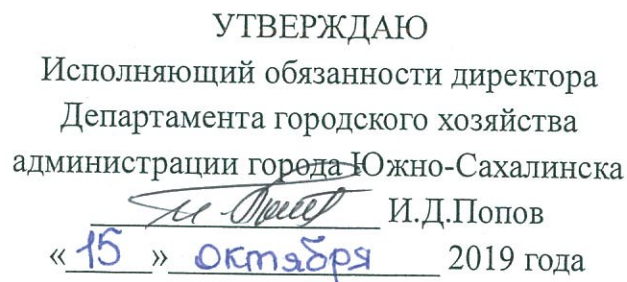 УТВЕРЖДАЮ
Исполняющий обязанности директора
Департамента городского хозяйства
администрации города Южно-Сахалинска
И.Д.Попов
«15» октября 2019 года